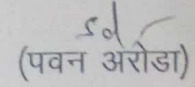 Sd
(पवन अरोडा)